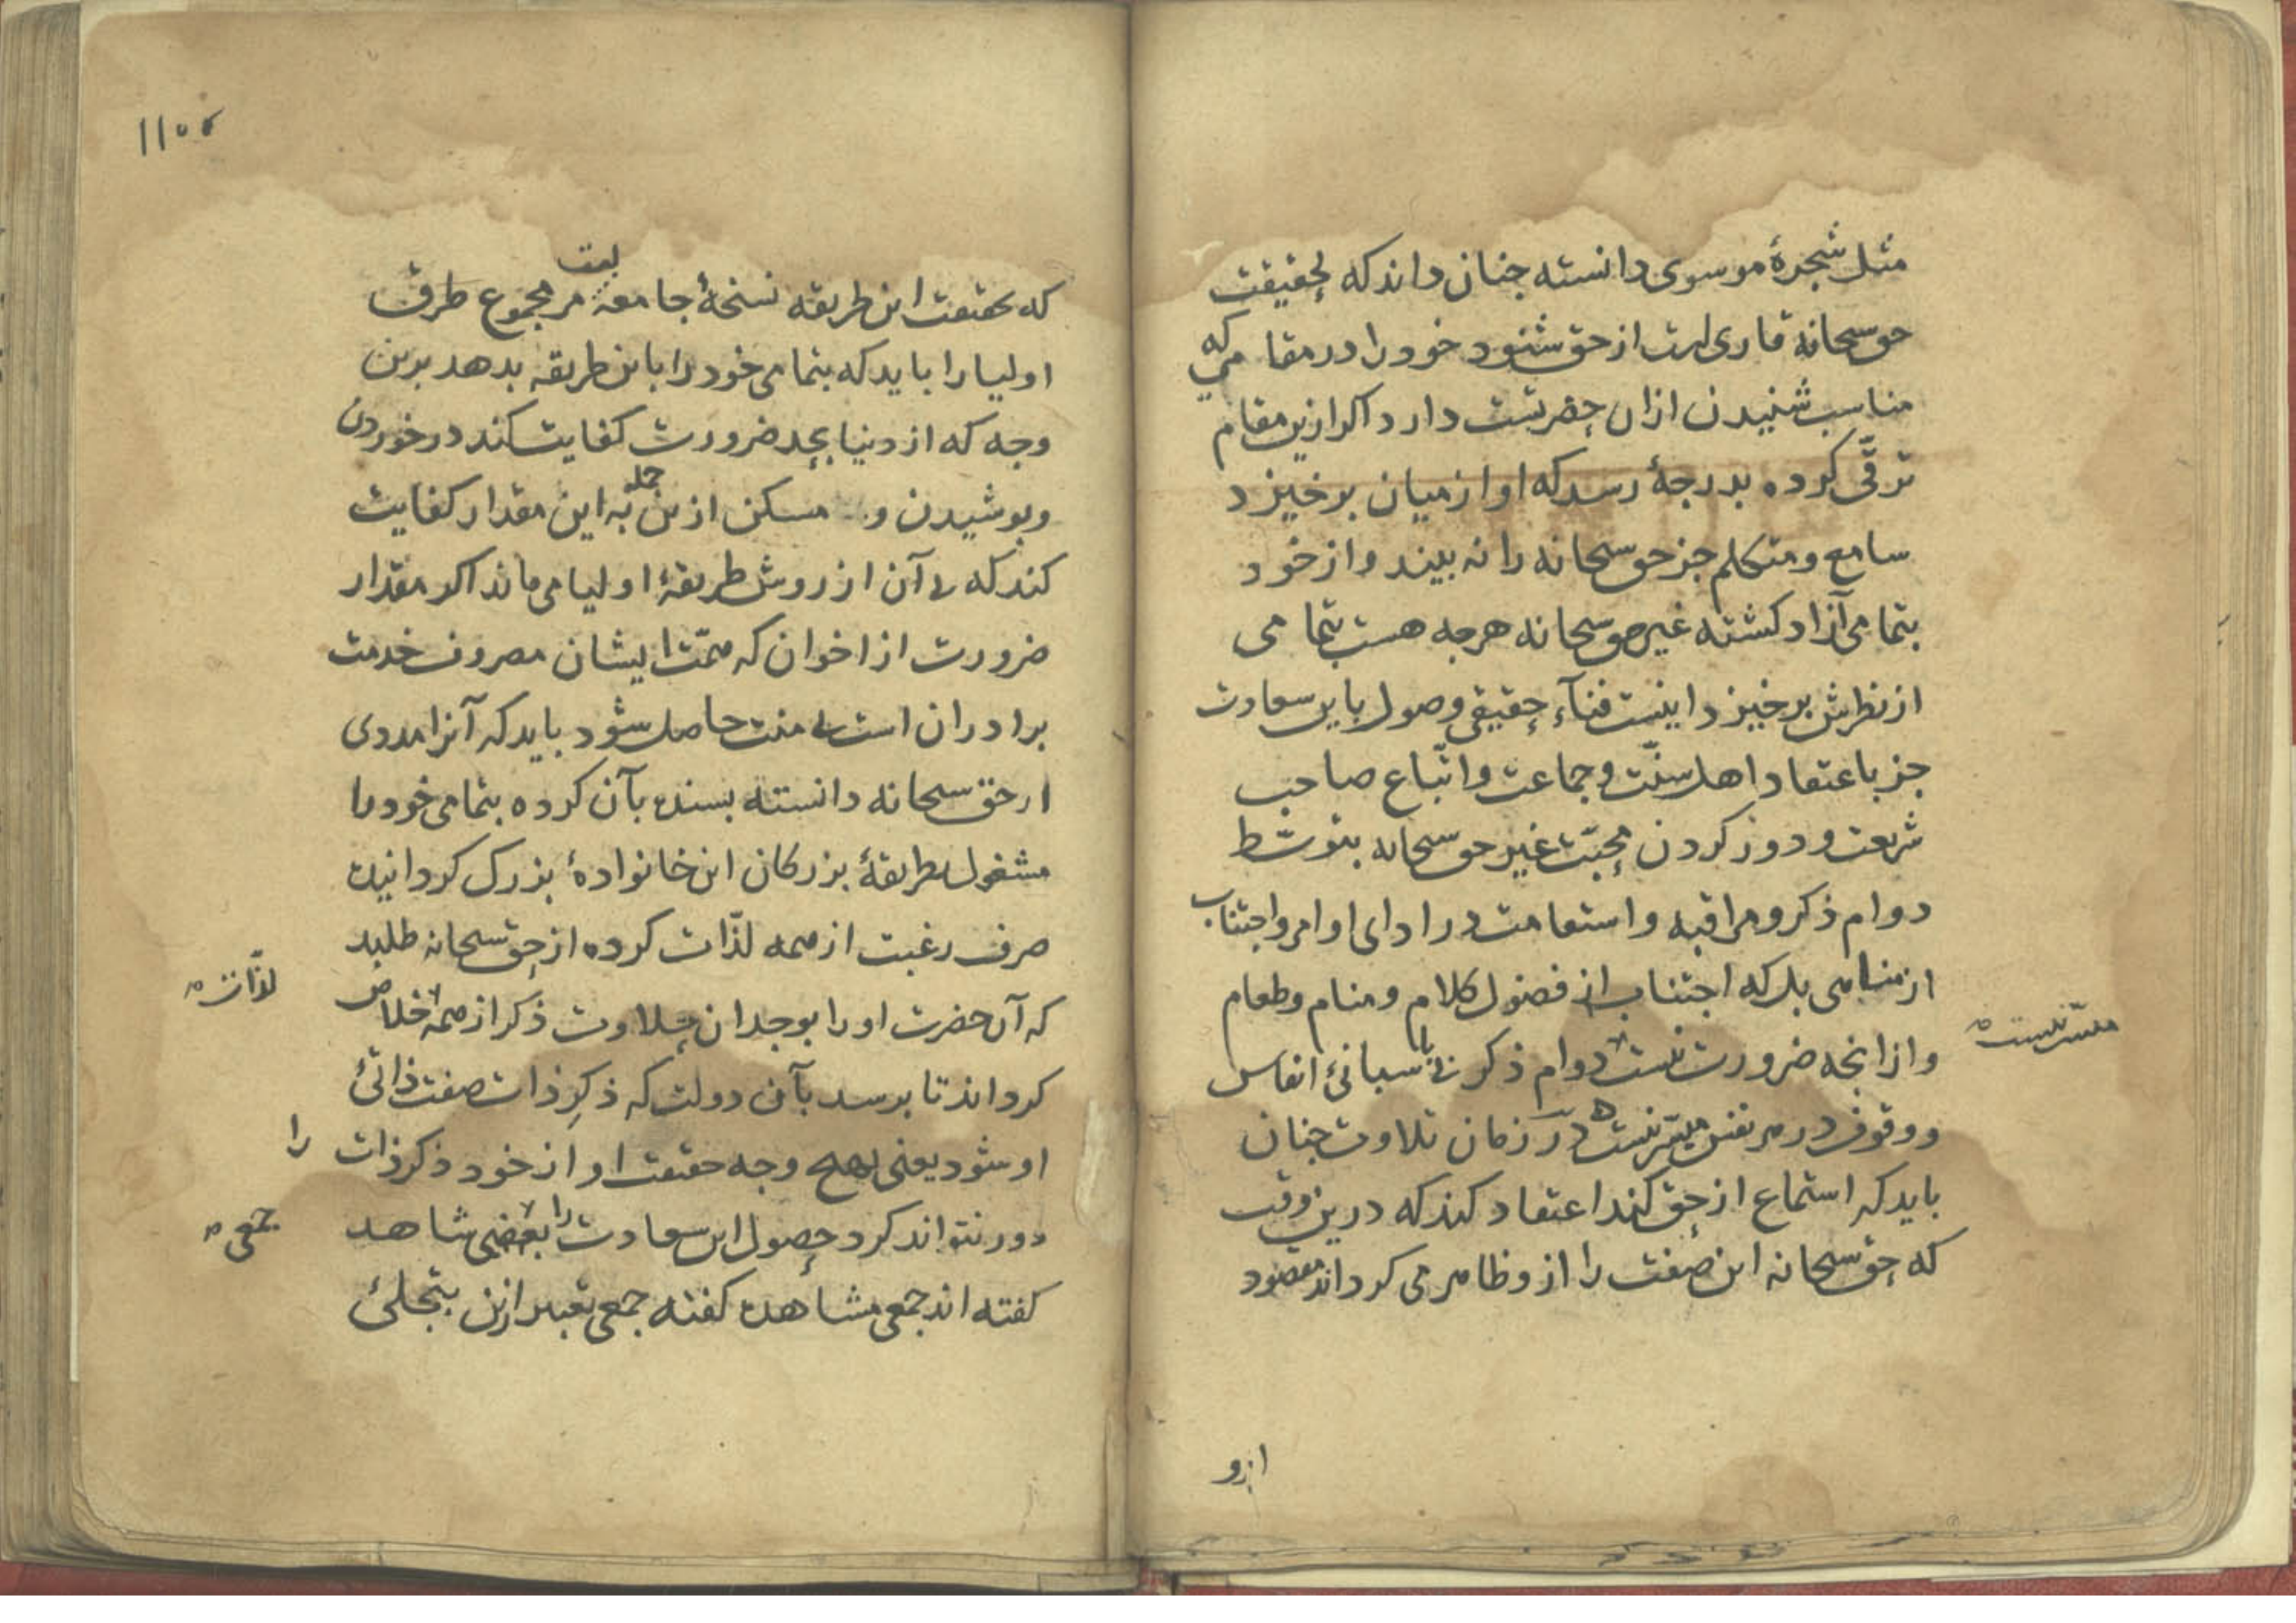 مثل شجرهٔ موسوی دانسته جنان داند که بحقیقت
حق سبحانه قاری است از حق شنود خود را در مقامی که
مناسب شنیدن ازان حضرتست دارد اکر ازین مقام
ترقّی کرده بدرجهٔ رسد که او از میان برخیزد
سامع و متکلم جز حق سبحانه را نه بیند و از خود
بتمامی آزاد کشته غیر حق سبحانه هرجه هست بتمامی
از نظرش برخیزد اینست فنآء حقیقی وصول باین سعادت
جز باعتقاد اهل سنّت و جماعت و اتّباع صاحب
شریعت و دور کردن محبّت غیر حق سبحانه بتوسّط
دوام ذکر و مراقبه و استقامت در ادای اوامر و اجتناب
از مناهی بل که اجتناب از فضول کلام و منام و طعام
و ازانجه ضرورت نیست دوام ذکر بی پاسبانئ انفاس
و وقوف در هر نفس میسّر نیست در زمان تلاوت جنان
میسّر نیست
باید که استماع از حق کند اعتقاد کند که درین وقت
که حق سبحانه این صفت را ازو ظاهر می کرداند مقصود
ازو
که بحقیقت این طریقه نسخهٔ جامعه مر مجموع طرق
اولیا را باید که بتمامی خود را باین طریقه بدهد برین
وجه که از دنیا بحد ضرورت کفایت کند در خوردن
وبوشیدن و مسکن ازین جمله به این مقدار کفایت
کند که بی آن از روش طریقهٔ اولیا می ماند اکر مقدار
ضرورت از اخوان که همّت ایشان مصروف خدمت
برادران است بی منت حاصل شود باید که آنرا مددی
از حق سبحانه دانسته بسنده بآن کرده بتمامی خود را
مشغول بطریقهٔ بزرکان این خانوادهٔ بزرک کردانیده
صرف رغبت از همه لذّات کرده از حق سبحانه طلبد
که آن حضرت او را بوجدان حلاوت ذکر از همه خلاص
لذّات
کرداند تا برسد بآن دولت که ذکر ذات صفت ذاتئ
او شود یعنی بهیج وجه حقیقت او از خود ذکر ذات را
دور نتواند کرد حصول این سعادت را بعضی شاهد
جمعی
کفته اند جمعی مشاهده کفته جمعی تعبیر ازین بتجلئ